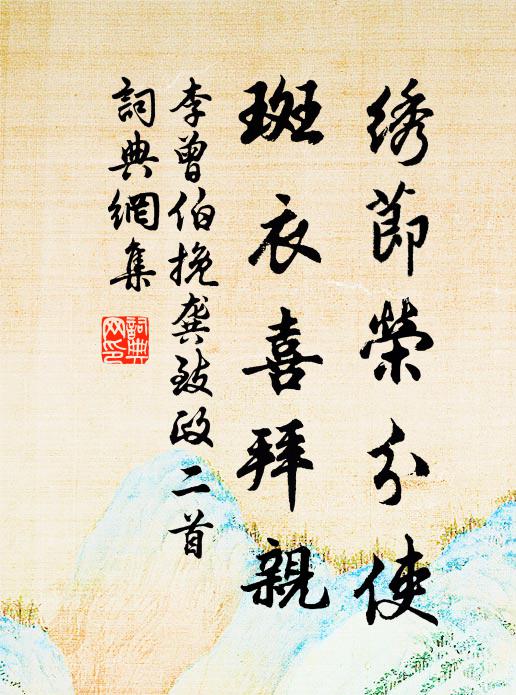 绣節榮分使
斑衣喜拜親
李曾伯挽龔致政二首
詞典網集
詞典網印